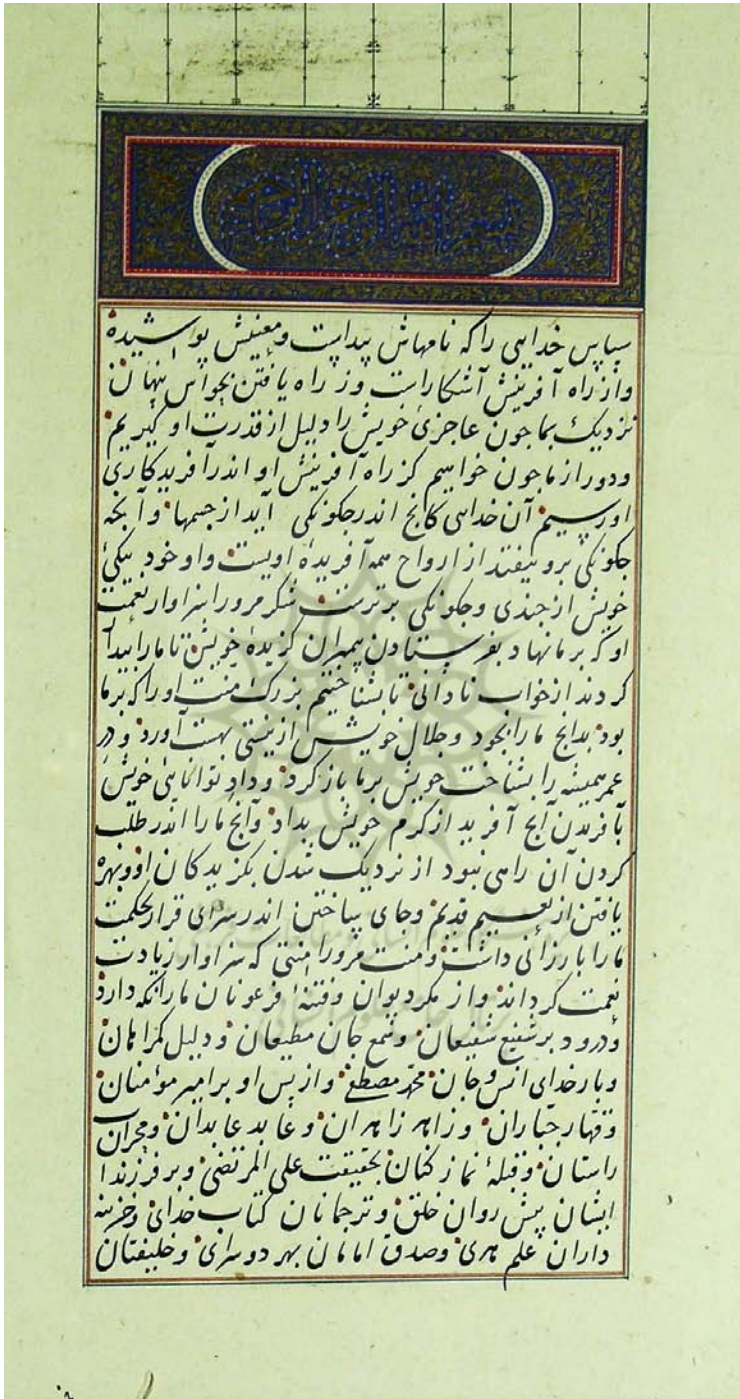 بسم الله الرحمن الرحیم
سپاس خدایی راکه نامهاش پیداست ومعنیش پوشیدهٔ
وازراه آفرینش آشکاراست وز راه یافتن بحواس پنهان
نزدیک بما جون عاجزیٔ خویش را دلیل از قدرت او گیریم
ودور ازماجون خواهیم کزراه آفرینش او اندرآفریدکاری
اورسیم آن خدایی کانج اندرجکونکی آید ازجسمها وآنجه
جکونکی برو نیفتد از ارواح همه آفریدهٔ اویست واو خود بیکیٔ
خویش ازجندی وجکونکی برترست شکر مرورا سزاوار نعمت
اوکه برمانهاد بفرستادن پیمبران کزیدهٔ خویش تا مارا بیدار
کردند ازخواب نادانی تابشناختیم بزرک منت اوراکه برما
بود بدانج مارابجود وجلال خویش ازنیستی بهست آورد ودر
عمرهمیشه را بشناخت خویش برما باز کرد وداد توانایی خویش
بآفریدن آنج آفرید ازکرم خویش بداد وآنج مارا اندر طلب
کردن آن راهی نبود از نزدیک شدن بکزیدکان او وبهره
یافتن ازنعیم قدیم وجای ساختن اندرسرای قرار بحکمت
مارا بارزانی داشت ومنت مرورا منتی که سزاوار زیادت
نعمت کرداند واز مکر دیوان وفتنهٔ فرعونان مارانکه دارد
ودرود برشفیع شفیعان وشمع جان مطیعان ودلیل کمراهان
وبارخدای انس وجان محمد مصطفی وازپس او برامیر مؤمنان
وقهار جباران وزاهد زاهدان وعابد عابدان ومحراب
راستان وقبلهٔ نمازکنان بحقیقت علی المرتضی وبر فرزندان
ایشان پیش روان خلق وترجمانان کتاب خدای وخزینه
داران علم هدی وصدق امامان بهر دوسرای وخلیفتان